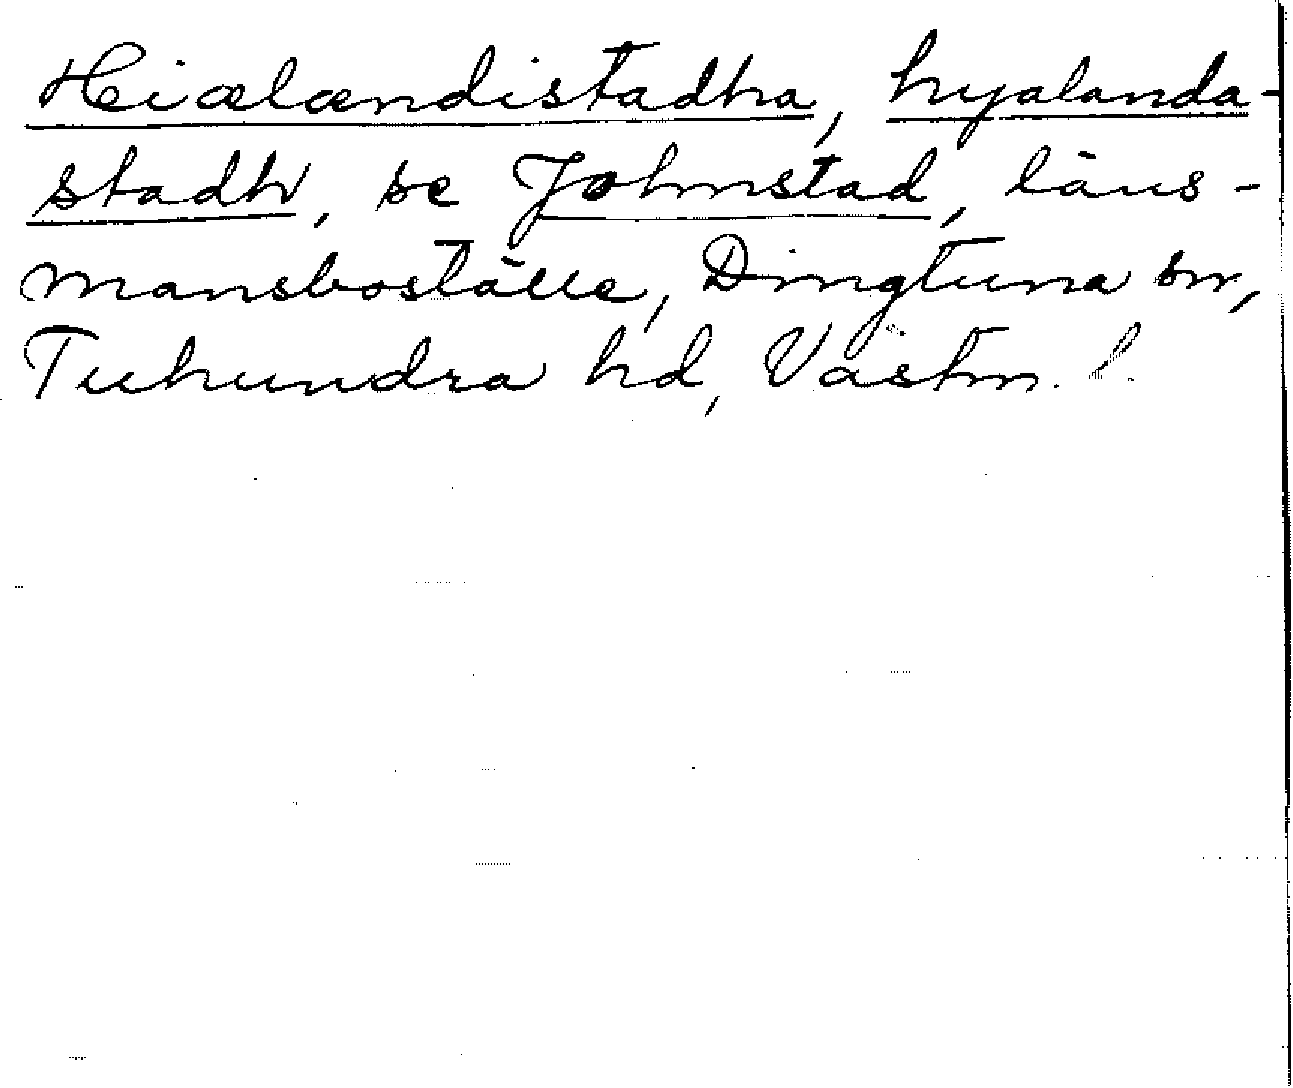 Hiælændistadha, hyalanda-
stadh, se Johnstad, läns-
mansboställe, Dingtuna sn,
Tuhundra hd, Västm. l.